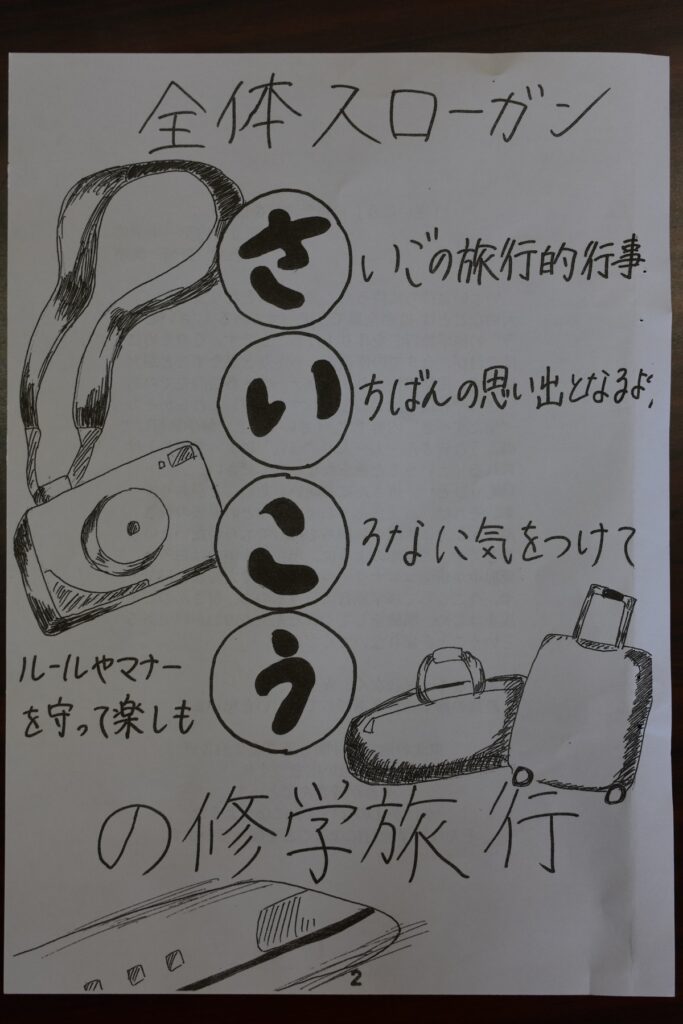 全体スローガン
さいごの旅行的行事
いちばんの思い出となるよう
ころなに気をつけて
ルールやマナー
を守って楽しもう
の修学旅行
2